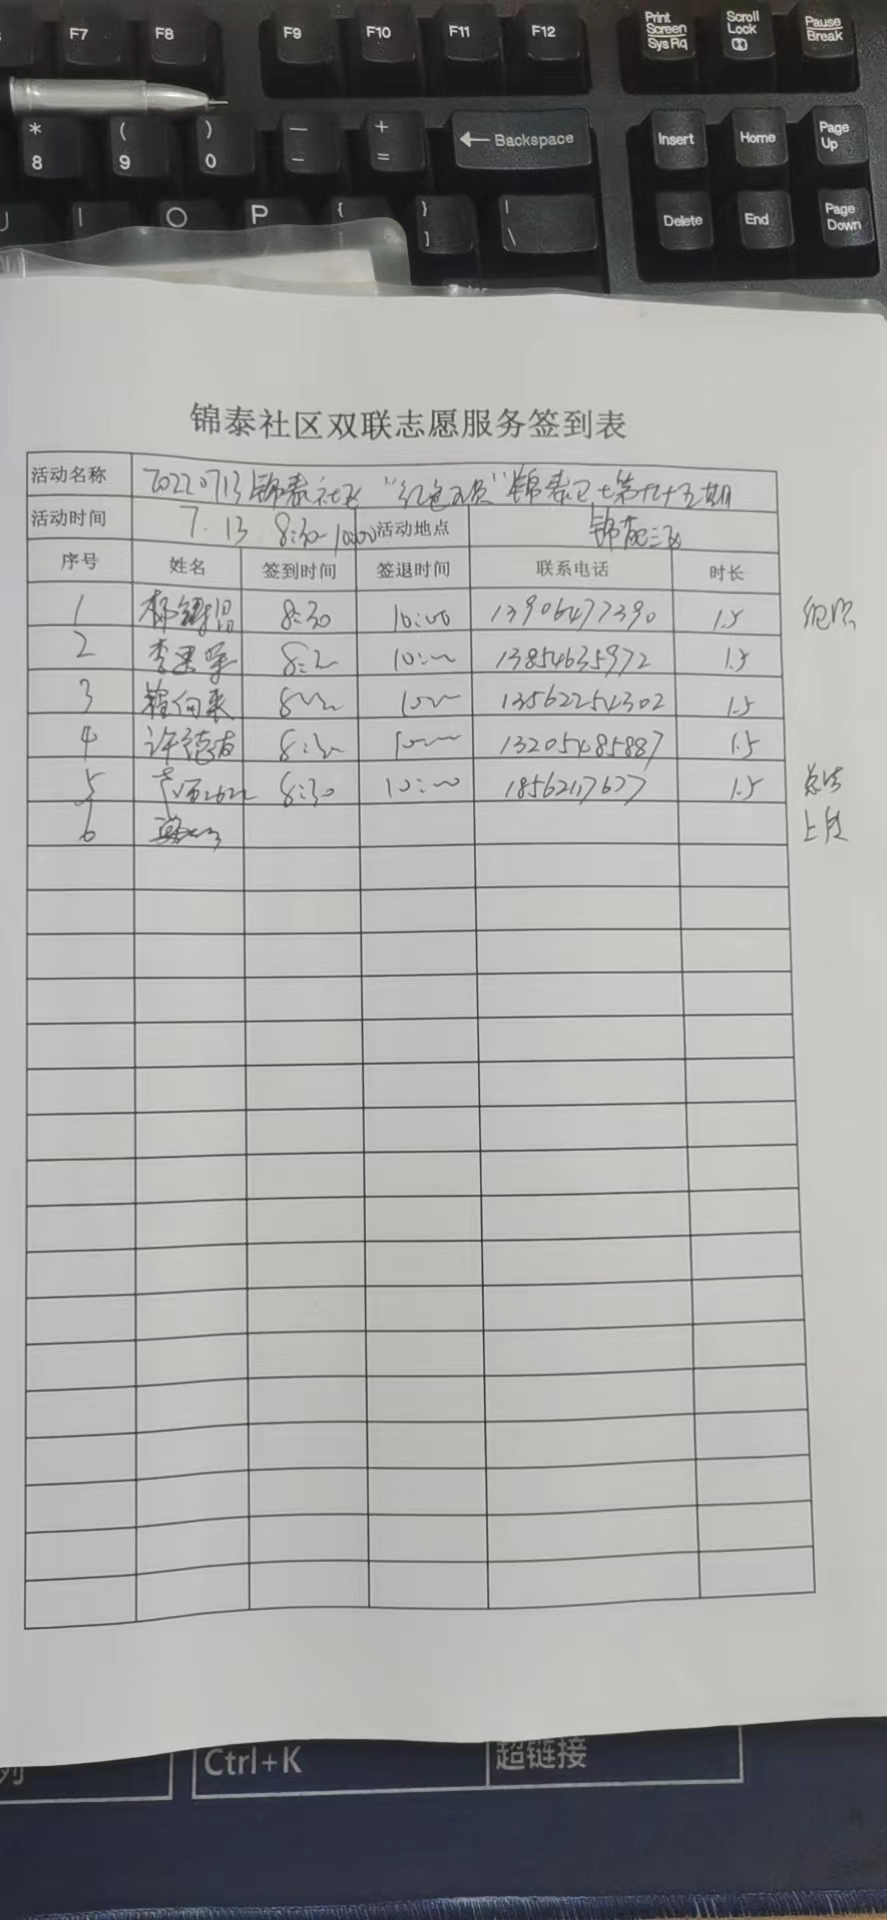 F7 F8 F9 F10 F11 F12 Print Screen SysRq Scroll Lock Pause Break
* 8 ( 9 ) 0 — - + = ← Backspace Insert Home Page Up
I O P { } ] | \ Delete End Page Down
锦泰社区双联志愿服务签到表
活动名称 20220713锦泰社区“红色”锦泰卫士第九十五期
活动时间 7.13 8:30-10:00 活动地点 锦苑三区
序号 姓名 签到时间 签退时间 联系电话 时长
1 8:30 10:00 13906477390 1.5
2 李 8:30 10:00 13854635972 1.5
3 向 8:30 10:00 13562254302 1.5
4 许德友 8:30 10:00 13205485887 1.5
5 8:30 10:00 18562117677 1.5
6
Ctrl+K 超链接